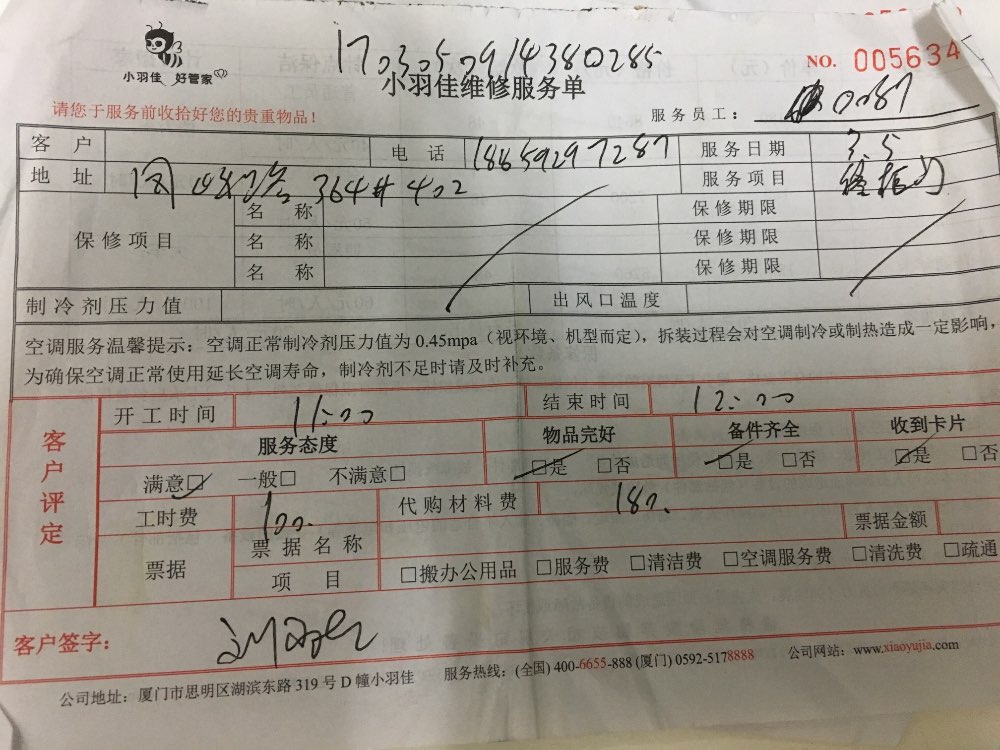 小羽佳 好管家
1703050914380285
小羽佳维修服务单
NO. 005634
请您于服务前收拾好您的贵重物品！
服务员工： 0087
客户 电话 18659297287 服务日期 3.5
地址 364# 402 服务项目
保修项目 名称 保修期限
名称 保修期限
名称 保修期限
制冷剂压力值 出风口温度
空调服务温馨提示：空调正常制冷剂压力值为 0.45mpa（视环境、机型而定），拆装过程会对空调制冷或制热造成一定影响，
为确保空调正常使用延长空调寿命，制冷剂不足时请及时补充。
客户评定
开工时间 11:00 结束时间 12:00
服务态度 物品完好 备件齐全 收到卡片
满意□ 一般□ 不满意□ □是 □否 □是 □否 □是 □否
工时费 100. 代购材料费 180.
票据 票据名称 票据金额
项目 □搬办公用品 □服务费 □清洁费 □空调服务费 □清洗费 □疏通
客户签字：
公司地址：厦门市思明区湖滨东路 319 号 D 幢小羽佳 服务热线：(全国) 400-6655-888 (厦门) 0592-5178888 公司网站：www.xiaoyujia.com